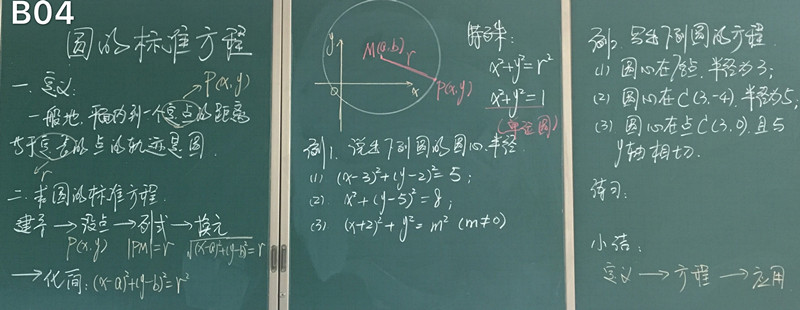 B04
圆的标准方程
一.定义:
P(x,y)
一般地,平面内到一个定点的距离
等于定长的点的轨迹是圆.
r
二.求圆的标准方程.
建系→设点→列式→换元
P(x,y) |PM|=r √(x-a)²+(y-b)²=r
→化简:(x-a)²+(y-b)²=r²
y
M(a,b)
r
P(x,y)
O
x
特殊:
x²+y²=r²
x²+y²=1
(单位圆)
例1.说出下列圆的圆心.半径
(1) (x-3)²+(y-2)²=5;
(2) x²+(y-5)²=8;
(3) (x+2)²+y²=m² (m≠0)
例2.写出下列圆的方程
(1) 圆心在原点.半径为3;
(2) 圆心在C(3,-4).半径为5;
(3) 圆心在点C(3,0).且与
y轴相切.
练习:
小结:
定义→方程→应用